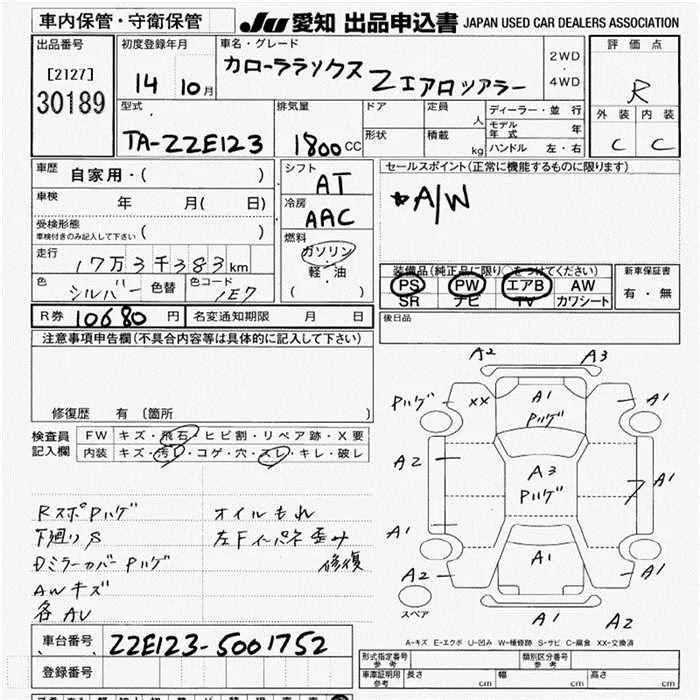 車内保管・守衛保管
JU 愛知 出品申込書 JAPAN USED CAR DEALERS ASSOCIATION
出品番号
[2127]
30189
初度登録年月
14 10月
車名・グレード
カローララソクス Zエアロツアラー
2WD
・
4WD
評価点
R
外装 内装
C C
型式
TA-ZZE123
排気量
1800CC
ドア
形状
定員 人
積載 kg
ディーラー・並行
モデル年式 年
ハンドル 左・右
車歴
自家用・( )
車検 年 月( 日)
受検形態
車検付きのみ記入して下さい ( )
走行
17万3千383km
色
シルバー
色替
色コード
1E7
シフト
AT
冷房
AAC
燃料
ガソリン
・
軽・油
( )
セールスポイント(正常に機能するものに限ります)
A/W
装備品(純正品に限り○をつけてください)
PS PW エアB AW
SR ナビ TV カワシート
新車保証書
有・無
後日品
R券 10680円
名変通知期限 月 日
注意事項申告欄(不具合内容等は具体的に記入して下さい)
修復歴 有(箇所 )
検査員
記入欄
FW キズ・飛石・ヒビ割・リペア跡・X要
内装 キズ・汚レ・コゲ・穴・スレ・キレ・破レ
RスポPハゲ
下廻りS
DミラーカバーPハゲ
AWキズ
各AU
オイルもれ
左Fイ-パネ歪み
修復
A2 A3
Pハゲ XX A1 A1
Pハゲ
A2 A3
Pハゲ A1
A1 A1
A2 A1
A1 A2
スペア
A-キズ E-エクボ U-凹み W-補修跡 S-サビ C-腐食 XX-交換済
車台番号
ZZE123-5001752
登録番号
形式指定番号
参考 cm
類別区分番号
参考
車庫証明用
参考
長さ cm
幅 cm
高さ cm